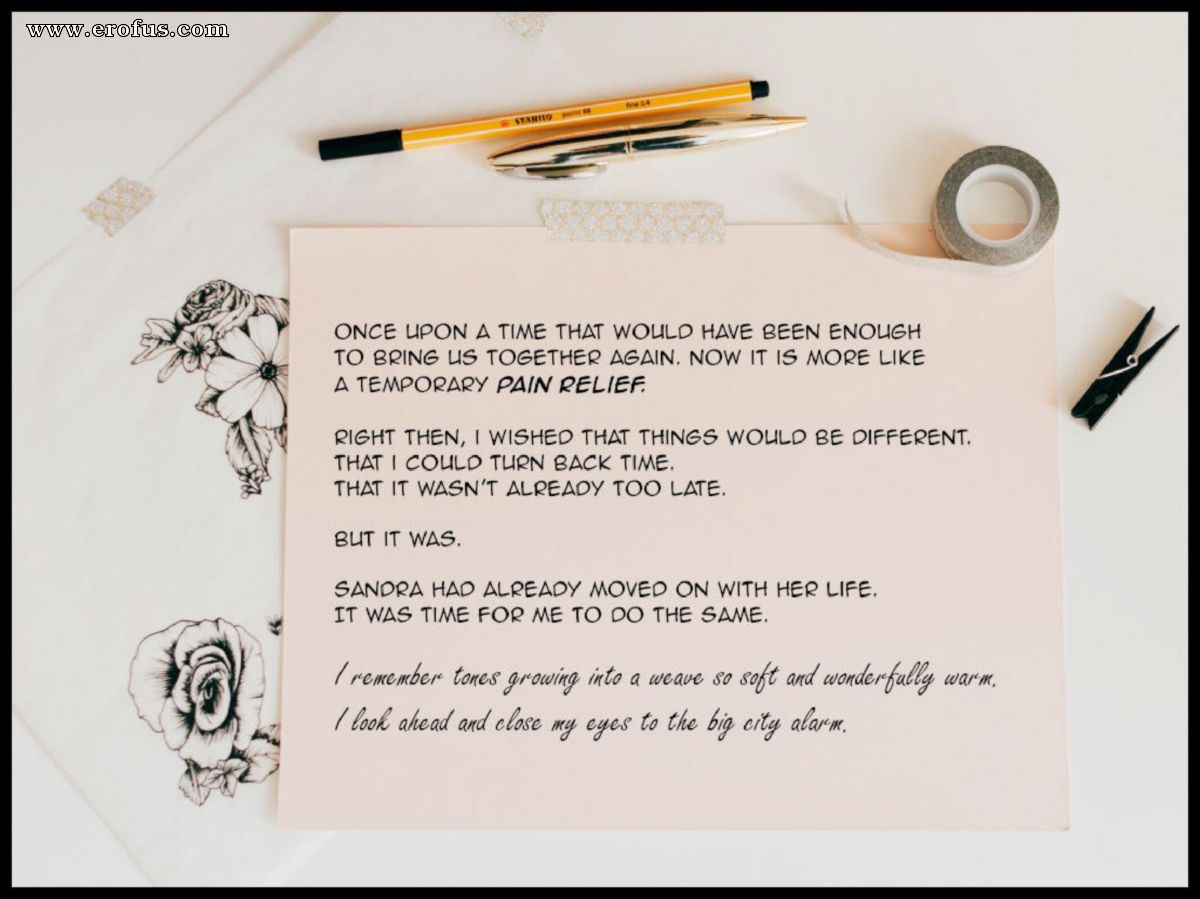 www.erofus.com
STABILO point 88 fine 0,4
ONCE UPON A TIME THAT WOULD HAVE BEEN ENOUGH
TO BRING US TOGETHER AGAIN. NOW IT IS MORE LIKE
A TEMPORARY PAIN RELIEF.
RIGHT THEN, I WISHED THAT THINGS WOULD BE DIFFERENT.
THAT I COULD TURN BACK TIME.
THAT IT WASN'T ALREADY TOO LATE.
BUT IT WAS.
SANDRA HAD ALREADY MOVED ON WITH HER LIFE.
IT WAS TIME FOR ME TO DO THE SAME.
I remember tones growing into a weave so soft and wonderfully warm.
I look ahead and close my eyes to the big city alarm.